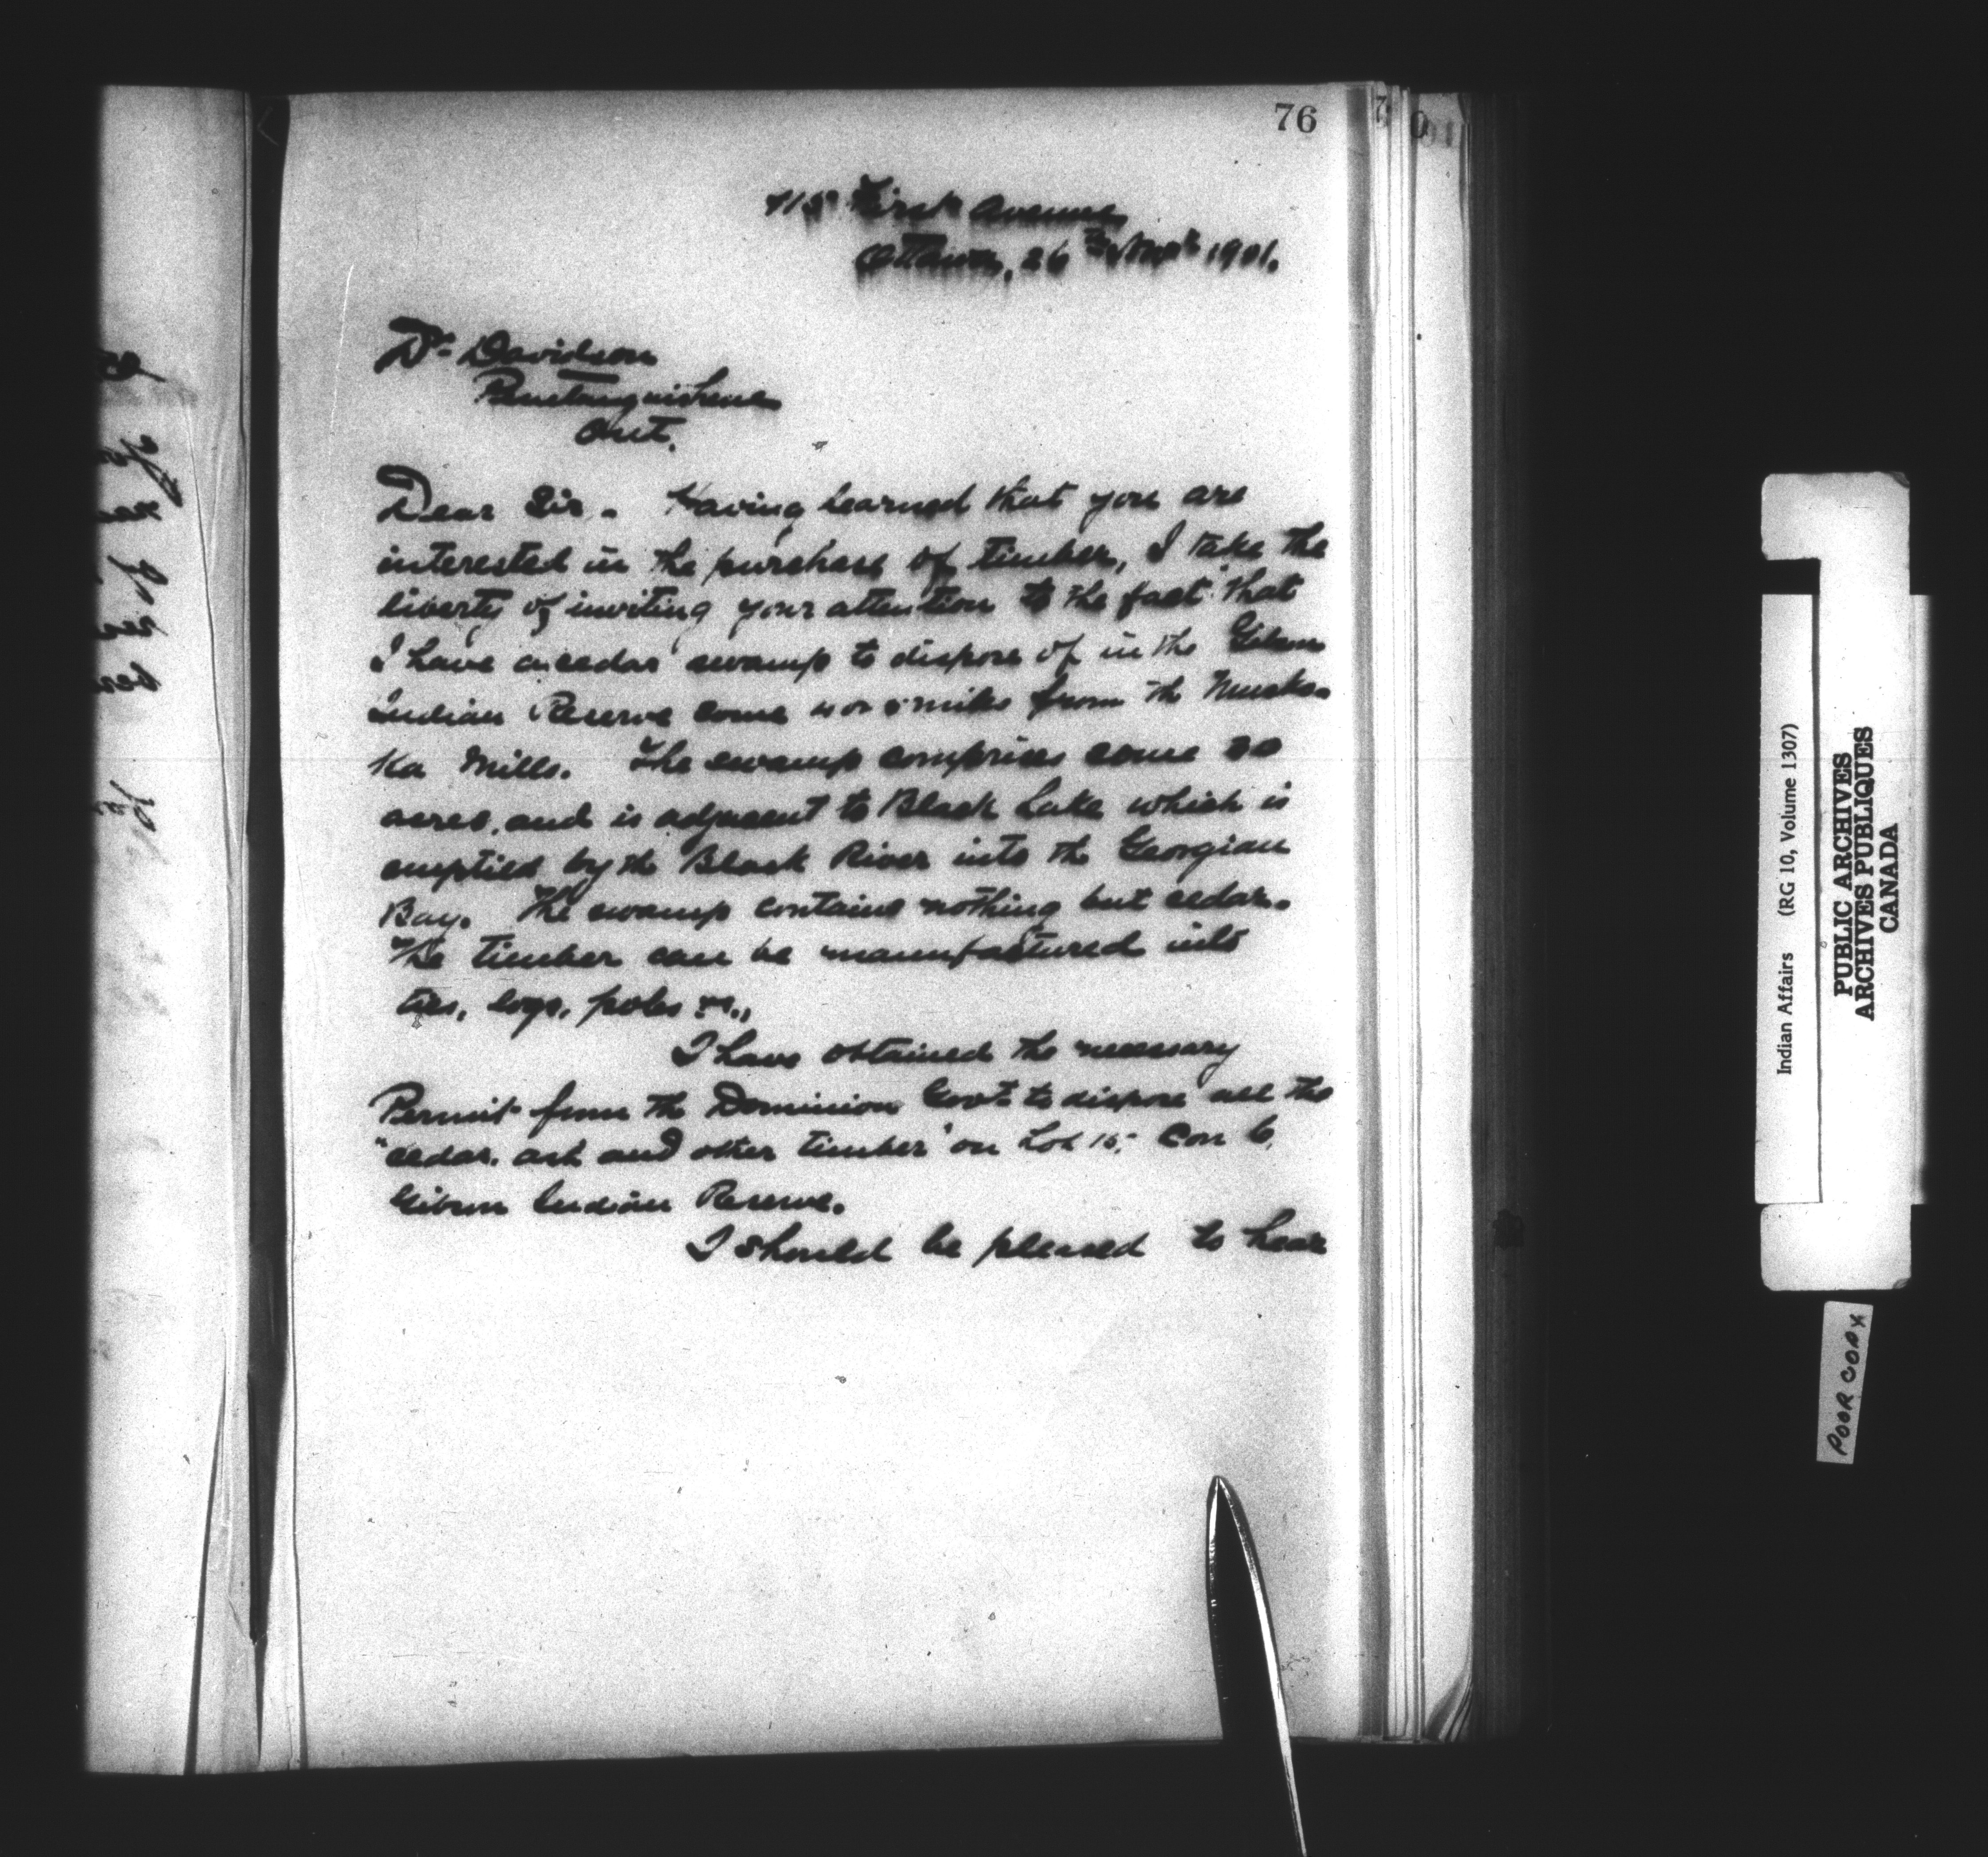 76
First Avenue
Ottawa, 26th 1901.
Dr. Davidson
Penetanguishene
Ont.
Dear Sir. Having learned that you are
interested in the purchase of timber, I take the
liberty of inviting your attention to the fact that
I have a cedar swamp to dispose of in the Gibson
Indian Reserve some 4 or 5 miles from the Musko
ka Mills. The swamp comprises some
acres, and is adjacent to Black Lake which is
emptied by the Black River into the Georgian
Bay. The swamp contains nothing but cedar.
The timber can be manufactured into
ties, logs, poles &c.,
I have obtained the necessary
Permit from the Dominion Govt. to dispose all the
"cedar, ash and other timber" on Lot 15, Con 6,
Gibson Indian Reserve.
I should be pleased to hear
Indian Affairs (RG 10, Volume 1307)
PUBLIC ARCHIVES
ARCHIVES PUBLIQUES
CANADA
POOR COPY